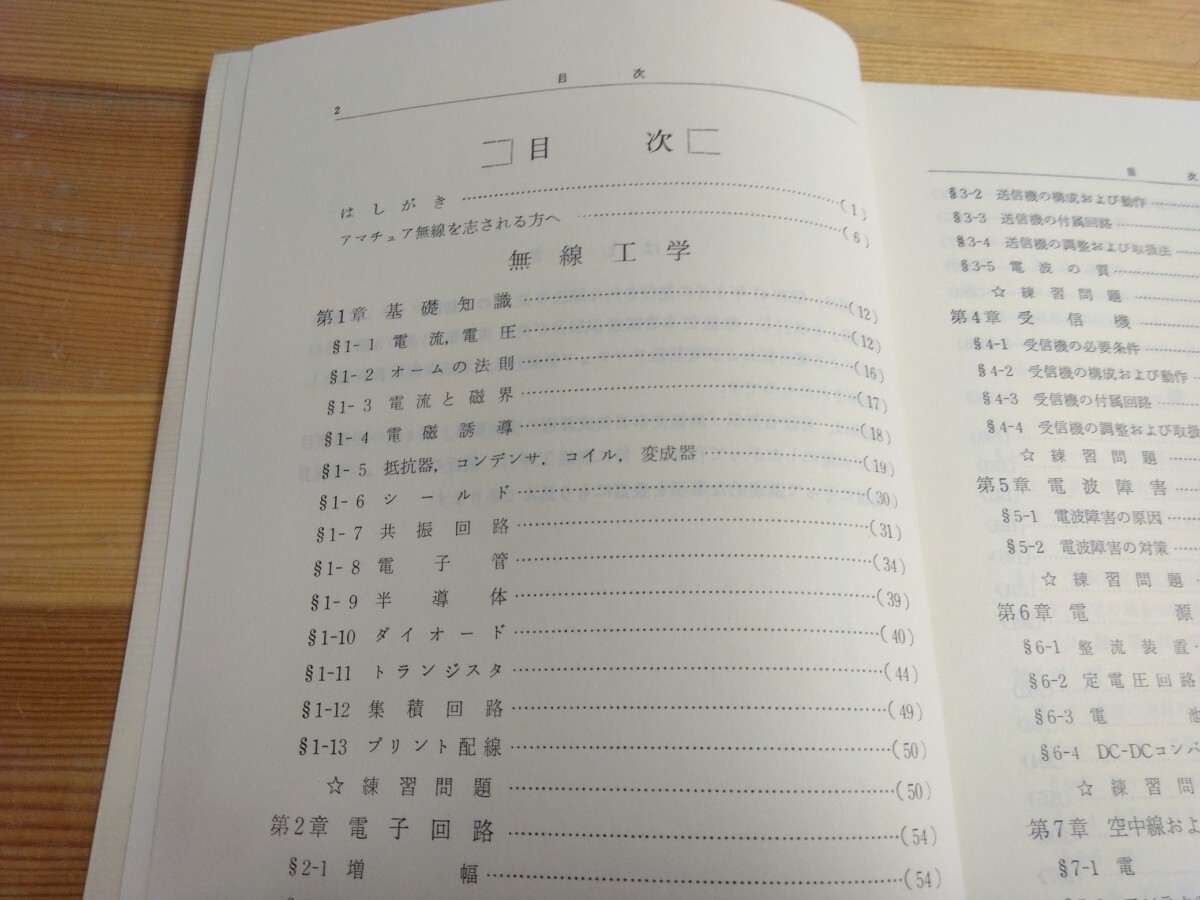 目次
2
目次
はしがき……(1)
アマチュア無線を志される方へ……(6)
無線工学
第1章 基礎知識……(12)
§1-1 電流,電圧……(12)
§1-2 オームの法則……(16)
§1-3 電流と磁界……(17)
§1-4 電磁誘導……(18)
§1-5 抵抗器,コンデンサ,コイル,変成器……(19)
§1-6 シールド……(30)
§1-7 共振回路……(31)
§1-8 電子管……(34)
§1-9 半導体……(39)
§1-10 ダイオード……(40)
§1-11 トランジスタ……(44)
§1-12 集積回路……(49)
§1-13 プリント配線……(50)
☆ 練習問題……(50)
第2章 電子回路……(54)
§2-1 増幅……(54)
目次
§3-2 送信機の構成および動作……
§3-3 送信機の付属回路……
§3-4 送信機の調整および取扱法……
§3-5 電波の質……
☆ 練習問題……
第4章 受信機……
§4-1 受信機の必要条件……
§4-2 受信機の構成および動作……
§4-3 受信機の付属回路……
§4-4 受信機の調整および取扱
☆ 練習問題……
第5章 電波障害……
§5-1 電波障害の原因……
§5-2 電波障害の対策……
☆ 練習問題……
第6章 電源
§6-1 整流装置……
§6-2 定電圧回路
§6-3 電池
§6-4 DC-DCコンバ
☆ 練習問
第7章 空中線およ
§7-1 電